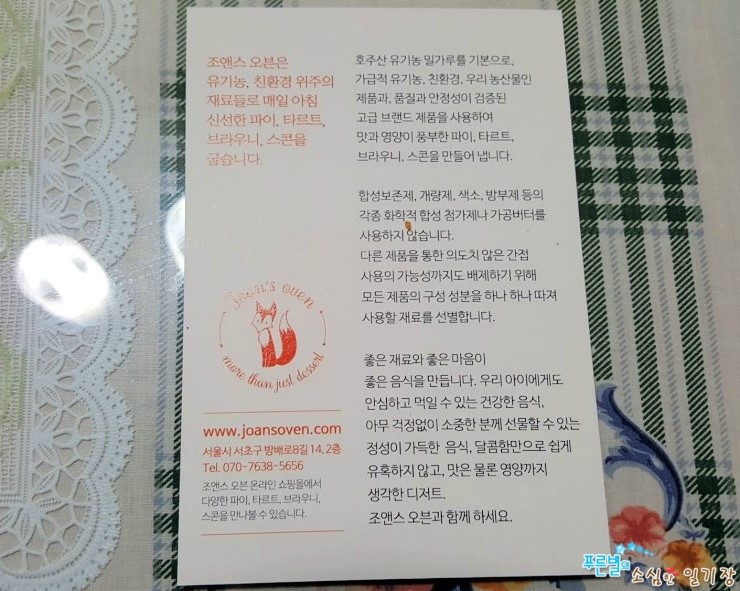 조앤스 오븐은
유기농, 친환경 위주의
재료들로 매일 아침
신선한 파이, 타르트,
브라우니, 스콘을
굽습니다.
Joan's oven
more than just dessert
www.joansoven.com
서울시 서초구 방배로8길 14, 2층
Tel. 070-7638-5656
조앤스 오븐 온라인 쇼핑몰에서
다양한 파이, 타르트, 브라우니,
스콘을 만나볼 수 있습니다.
호주산 유기농 밀가루를 기본으로,
가급적 유기농, 친환경, 우리 농산물인
제품과, 품질과 안정성이 검증된
고급 브랜드 제품을 사용하여
맛과 영양이 풍부한 파이, 타르트,
브라우니, 스콘을 만들어 냅니다.
합성보존제, 개량제, 색소, 방부제 등의
각종 화학적 합성 첨가제나 가공버터를
사용하지 않습니다.
다른 제품을 통한 의도치 않은 간접
사용의 가능성까지도 배제하기 위해
모든 제품의 구성 성분을 하나 하나 따져
사용할 재료를 선별합니다.
좋은 재료와 좋은 마음이
좋은 음식을 만듭니다. 우리 아이에게도
안심하고 먹일 수 있는 건강한 음식,
아무 걱정없이 소중한 분께 선물할 수 있는
정성이 가득한 음식, 달콤함만으로 쉽게
유혹하지 않고, 맛은 물론 영양까지
생각한 디저트.
조앤스 오븐과 함께 하세요.
푸른별의 소심한 일기장